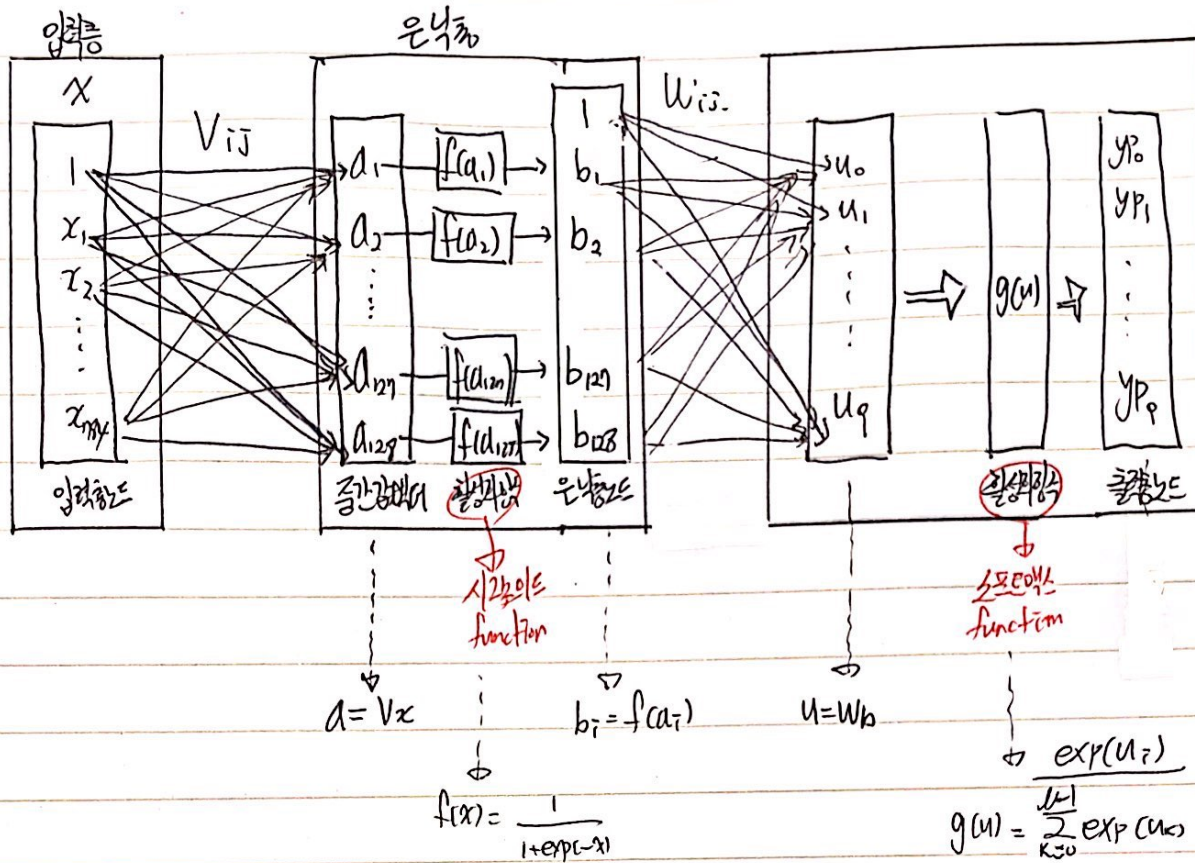 입력층
은닉층
x
V_ij
W_ij
1
x_1
x_2
x_784
입력층노드
a_1
a_2
a_127
a_128
중간값벡터
f(a_1)
f(a_2)
활성화함수
1
b_1
b_2
b_127
b_128
은닉층노드
u_0
u_1
u_9
g(u)
활성화함수
yp_0
yp_1
yp_9
출력층노드
시그모이드
function
소프트맥스
function
a = Vx
b_i = f(a_i)
u = Wb
f(x) = 1 / (1+exp(-x))
g(u) = exp(u_i) / Σ_{k=0}^{M-1} exp(u_k)